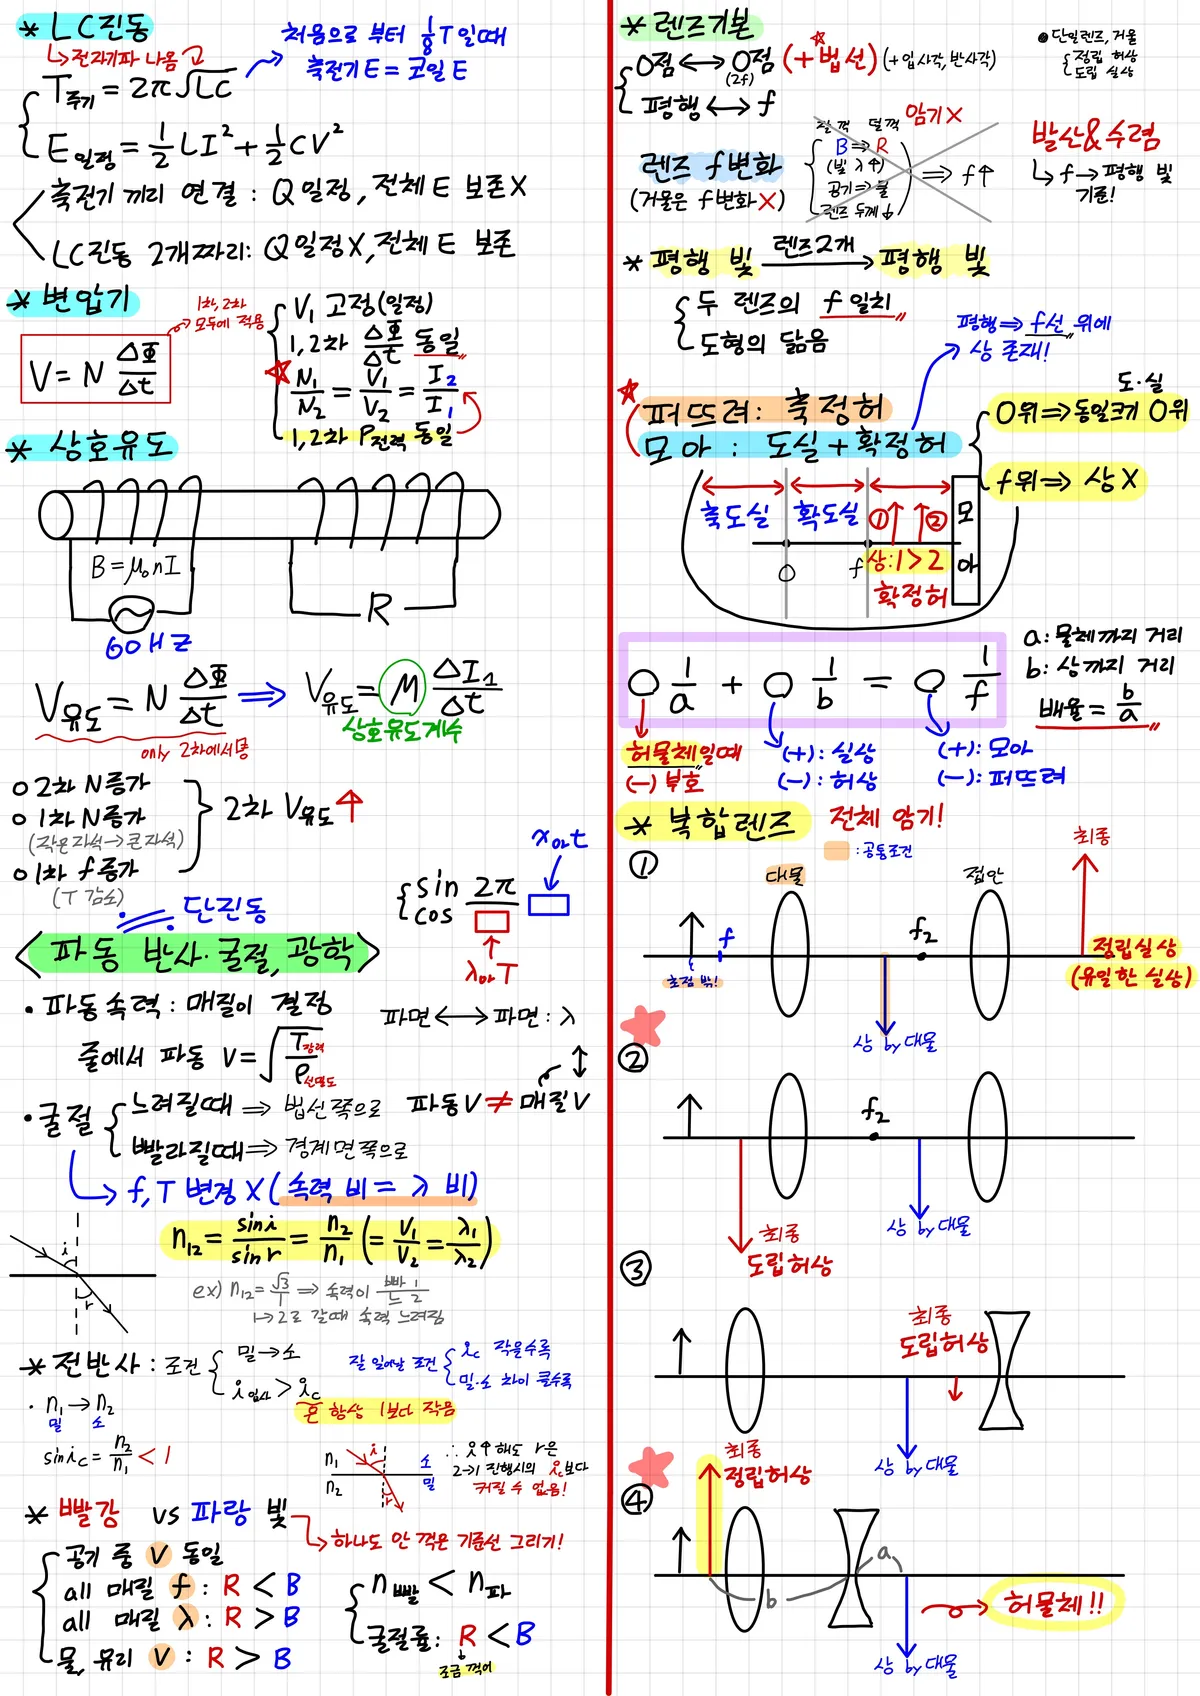 * LC진동
↳전자기파 나옴
처음으로 부터 1/8 T 일때
축전기 E = 코일 E
T주기 = 2π√LC
E일정 = 1/2 LI² + 1/2 CV²
축전기 끼리 연결 : Q 일정, 전체 E 보존X
LC진동 2개짜리: Q 일정X, 전체 E 보존
* 변압기
1차, 2차
모두에 적용
V = N ΔΦ/Δt
V₁ 고정(일정)
1, 2차 ΔΦ/Δt 동일
☆ N₁/N₂ = V₁/V₂ = I₂/I₁
1, 2차 P전력 동일
* 상호유도
B = μ₀nI
60Hz
R
V유도 = N ΔΦ/Δt ⇒ V유도 = M ΔI₁/Δt
only 2차에서만
상호유도계수
o 2차 N증가
o 1차 N증가
(작은자석→큰자석)
o 1차 f 증가
(T 감소)
2차 V유도 ↑
x or t
sin
cos
2π
λ or T
단진동
<파동 반사·굴절, 광학>
• 파동속력 : 매질이 결정
파면 ↔ 파면 : λ
줄에서 파동 v = √T장력/ρ선밀도
• 굴절
느려질때 ⇒ 법선쪽으로
빨라질때 ⇒ 경계면쪽으로
파동V ≠ 매질V
→ f, T 변경 X (속력 비 = λ 비)
n₁₂ = sin i/sin r = n₂/n₁ (= V₁/V₂ = λ₁/λ₂)
i
r
ex) n₁₂ = √3/1 ⇒ 속력이 빠 1/느 2
1→2로 갈때 속력 느려짐
* 전반사 : 조건
밀→소
i입사 > ic
은 항상 1보다 작음
잘 일어날 조건
ic 작을수록
밀·소 차이 클수록
• n₁ → n₂
밀 소
sin ic = n₂/n₁ < 1
n₁
n₂
i
r
소
밀
∴ i↑ 해도 r은
2→1 진행시의 ic보다
커질 수 없음!
* 빨강 vs 파랑 빛
→ 하나도 안 꺾은 기준선 그리기!
공기 중 v 동일
all 매질 f : R < B
all 매질 λ : R > B
물, 유리 v : R > B
n빨 < n파
굴절률: R < B
조금 꺾여
* 렌즈기본
O점 ↔ O점 (+법선) (+입사각, 반사각)
(2f)
평행 ↔ f
● 단일렌즈, 거울
정립 허상
도립 실상
렌즈 f변화
(거울은 f변화X)
잘 꺾 덜 꺾
암기X
B ⇒ R
(빛 λ↑)
공기 ⇒ 물
렌즈 두께↓
⇒ f↑
발산&수렴
↳ f → 평행 빛
기준!
* 평행 빛 렌즈2개→ 평행 빛
두 렌즈의 f 일치
도형의 닮음
평행 ⇒ f선 위에
상 존재!
☆ 퍼뜨려: 축정허
모아 : 도실 + 확정허
도·실
O위 ⇒ 동일크기 O위
f위 ⇒ 상 X
축도실
확도실
① ②
모아
O
f
상: 1 > 2
확정허
○ 1/a + ○ 1/b = ○ 1/f
a: 물체까지 거리
b: 상까지 거리
배율 = b/a
허물체일때
(−) 부호
(+): 실상
(−): 허상
(+): 모아
(−): 퍼뜨려
* 복합렌즈 전체 암기!
: 공통조건
①
대물
접안
최종
f
f₂
초점 밖!
정립실상
(유일한 실상)
상 by 대물
②
f₂
최종
도립허상
상 by 대물
③
최종
도립허상
상 by 대물
④
최종
정립허상
a
b
허물체!!
상 by 대물